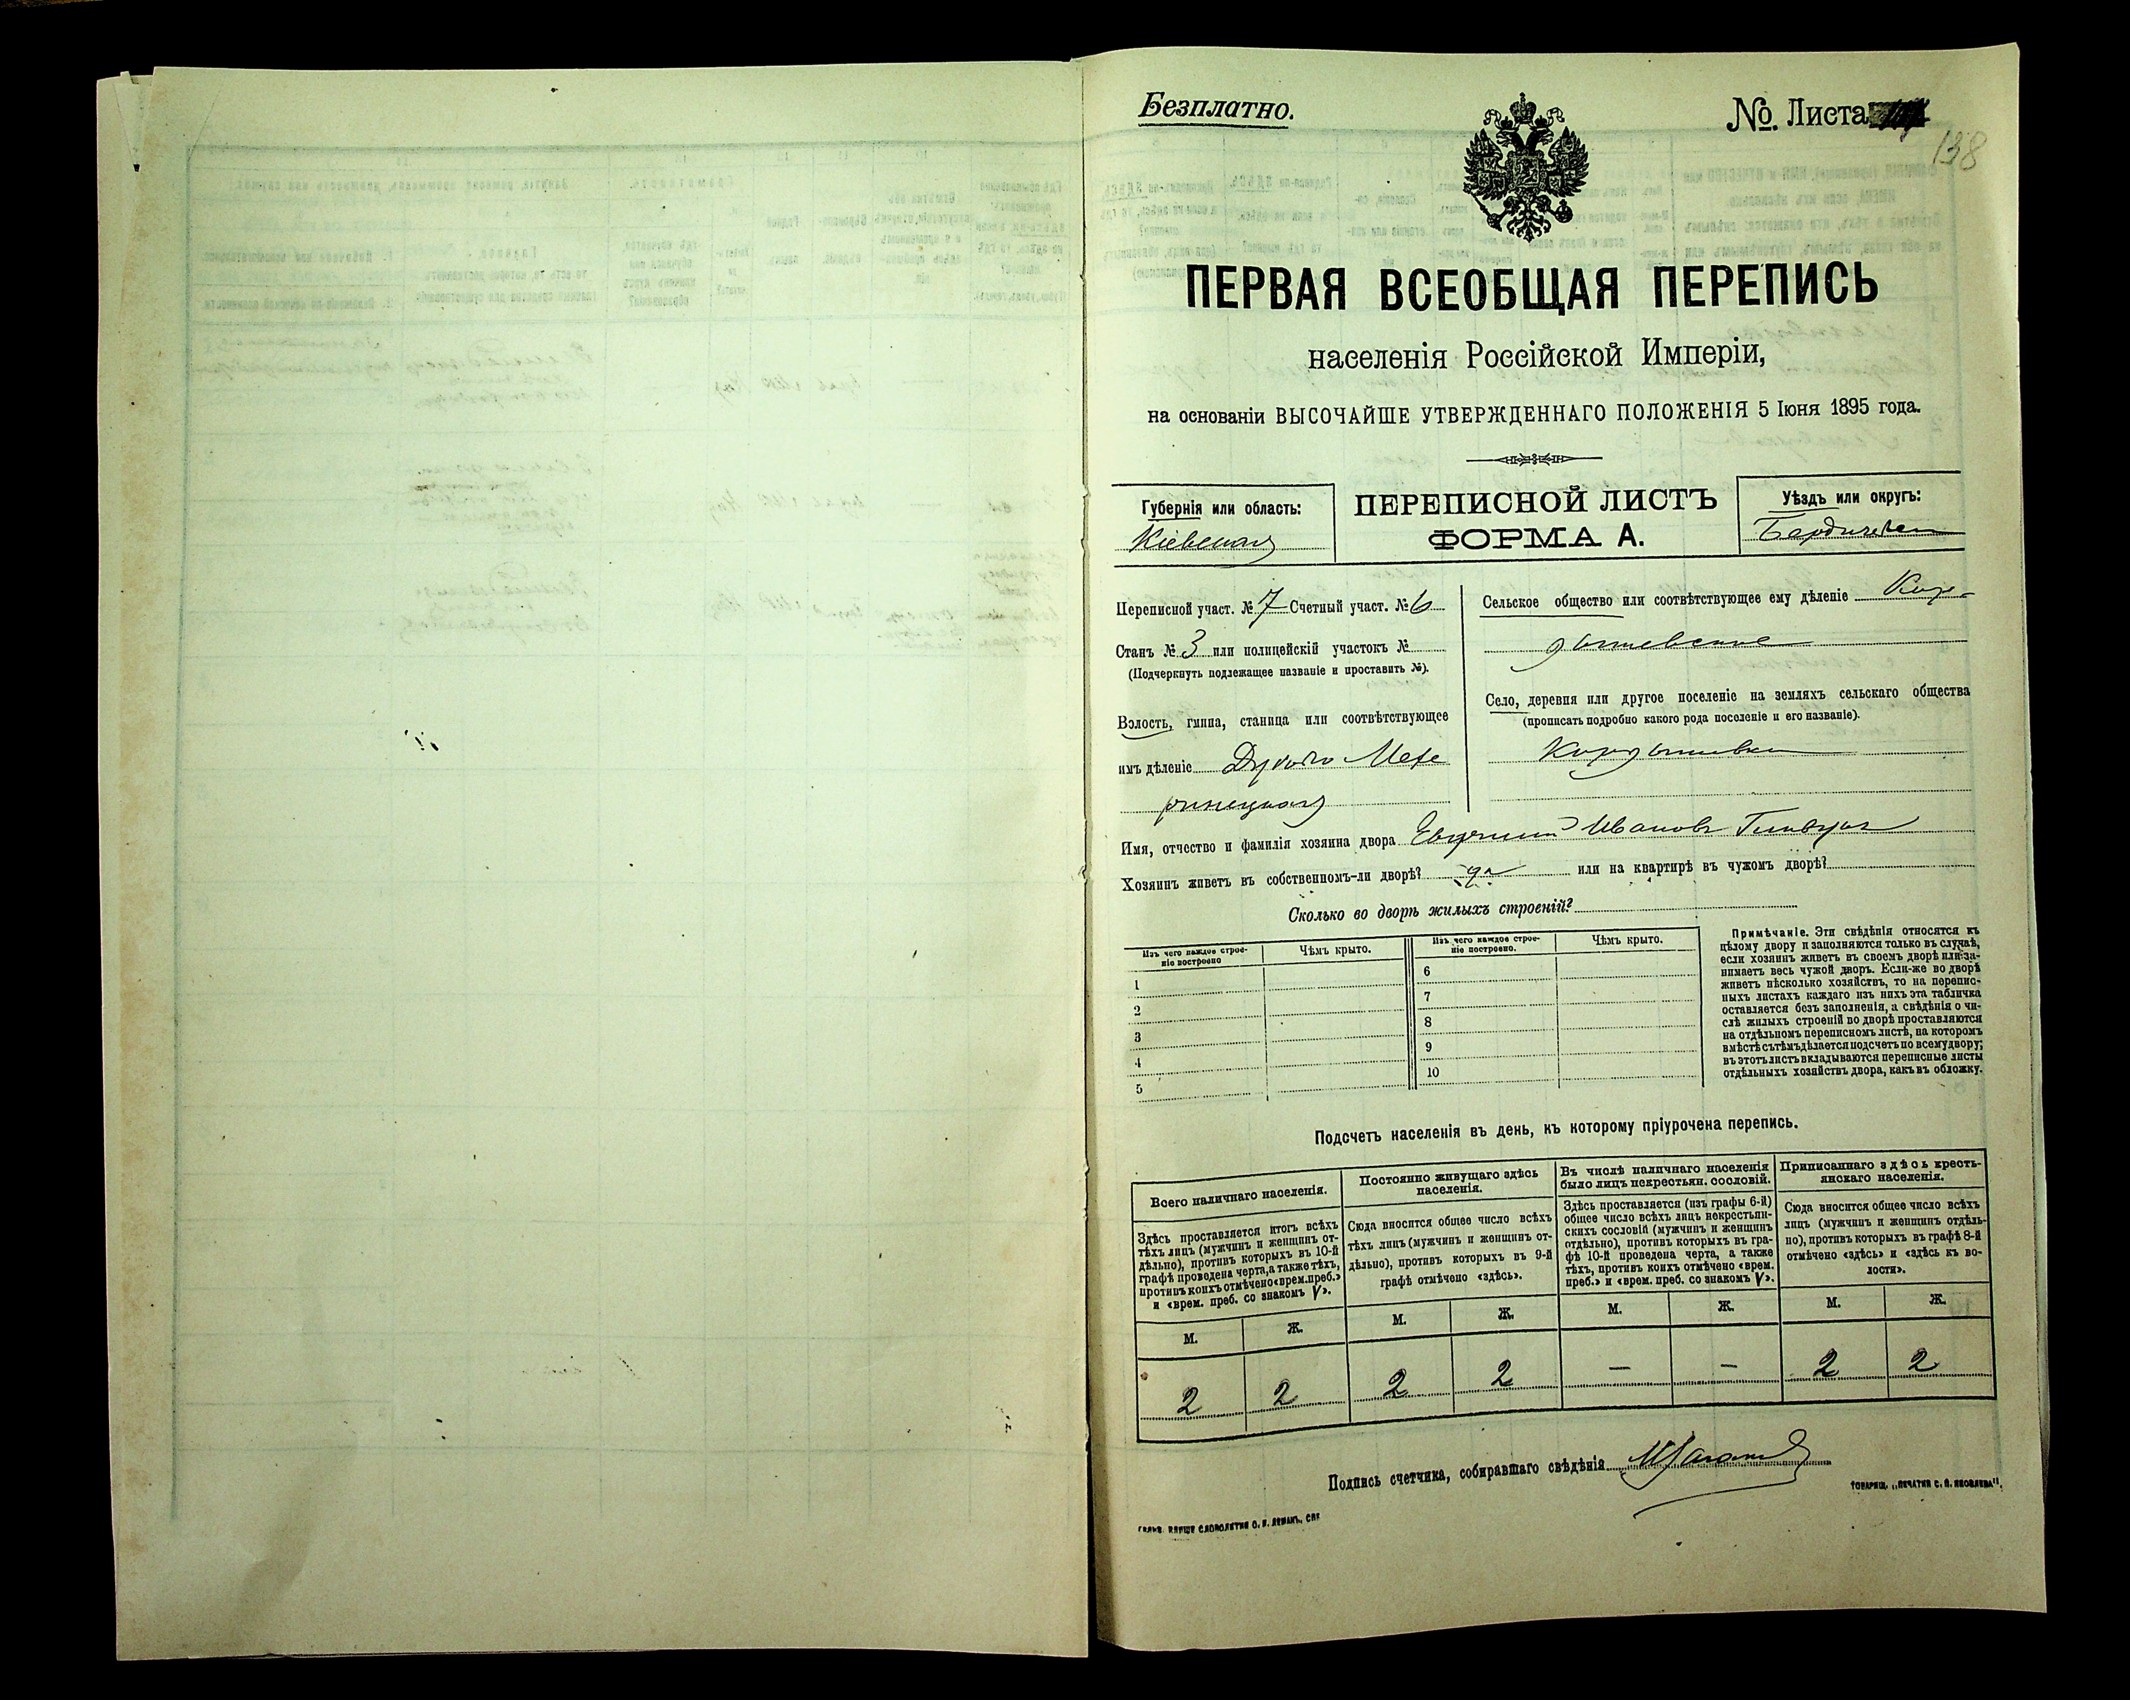 Безплатно.
№ Листа
138
ПЕРВАЯ ВСЕОБЩАЯ ПЕРЕПИСЬ
населенія Россійской Имперіи,
на основаніи ВЫСОЧАЙШЕ УТВЕРЖДЕННАГО ПОЛОЖЕНІЯ 5 Іюня 1895 года.
Губернія или область:
Кіевская
ПЕРЕПИСНОЙ ЛИСТЪ
ФОРМА А.
Уѣздъ или округъ:
Переписной участ. № 7 Счетный участ. № 6
Станъ № 3 или полицейскій участокъ №
(Подчеркнуть подлежащее названіе и проставить №).
Волость, гмина, станица или соотвѣтствующее
имъ дѣленіе
Сельское общество или соотвѣтствующее ему дѣленіе Кор-
дышевское
Село, деревня или другое поселеніе на земляхъ сельскаго общества
(прописать подробно какого рода поселеніе и его названіе).
Кордышевка
Имя, отчество и фамилія хозяина двора Ивановъ
Хозяинъ живетъ въ собственномъ-ли дворѣ? да или на квартирѣ въ чужомъ дворѣ?
Сколько во дворѣ жилыхъ строеній?
Изъ чего каждое строе-
ніе построено
Чѣмъ крыто.
Изъ чего каждое строе-
ніе построено.
Чѣмъ крыто.
1
2
3
4
5
6
7
8
9
10
Примѣчаніе. Эти свѣдѣнія относятся къ
цѣлому двору и заполняются только въ случаѣ,
если хозяинъ живетъ въ своемъ дворѣ или за-
нимаетъ весь чужой дворъ. Если-же во дворѣ
живетъ нѣсколько хозяйствъ, то на перепис-
ныхъ листахъ каждаго изъ нихъ эта табличка
оставляется безъ заполненія, а свѣдѣнія о чи-
слѣ жилыхъ строеній во дворѣ проставляются
на отдѣльномъ переписномъ листѣ, на которомъ
вмѣстѣ съ тѣмъ дѣлается подсчетъ по всему двору;
въ этотъ листъ вкладываются переписные листы
отдѣльныхъ хозяйствъ двора, какъ въ обложку.
Подсчетъ населенія въ день, къ которому пріурочена перепись.
Всего наличнаго населенія.
Здѣсь проставляется итогъ всѣхъ
тѣхъ лицъ (мужчинъ и женщинъ от-
дѣльно), противъ которыхъ въ 10-й
графѣ проведена черта, а также тѣхъ,
противъ коихъ отмѣчено «врем. преб.»
и «врем. преб. со знакомъ V».
М.
Ж.
2
2
Постоянно живущаго здѣсь
населенія.
Сюда вносится общее число всѣхъ
тѣхъ лицъ (мужчинъ и женщинъ от-
дѣльно), противъ которыхъ въ 9-й
графѣ отмѣчено «здѣсь».
М.
Ж.
2
2
Въ числѣ наличнаго населенія
было лицъ некрестьян. сословій.
Здѣсь проставляется (изъ графы 6-й)
общее число всѣхъ лицъ некрестьян-
скихъ сословій (мужчинъ и женщинъ
отдѣльно), противъ которыхъ въ гра-
фѣ 10-й проведена черта, а также
тѣхъ, противъ коихъ отмѣчено «врем.
преб.» и «врем. преб. со знакомъ V».
М.
Ж.
—
—
Приписаннаго здѣсь кресть-
янскаго населенія.
Сюда вносится общее число всѣхъ
лицъ (мужчинъ и женщинъ отдѣль-
но), противъ которыхъ въ графѣ 8-й
отмѣчено «здѣсь» и «здѣсь къ во-
лости».
М.
Ж.
2
2
Подпись счетчика, собиравшаго свѣдѣнія
ТОВАРИЩ. „ПЕЧАТНЯ С. П. ЯКОВЛЕВА“.
СЛОВОЛИТНЯ О. И. ЛЕМАНЪ, СПБ